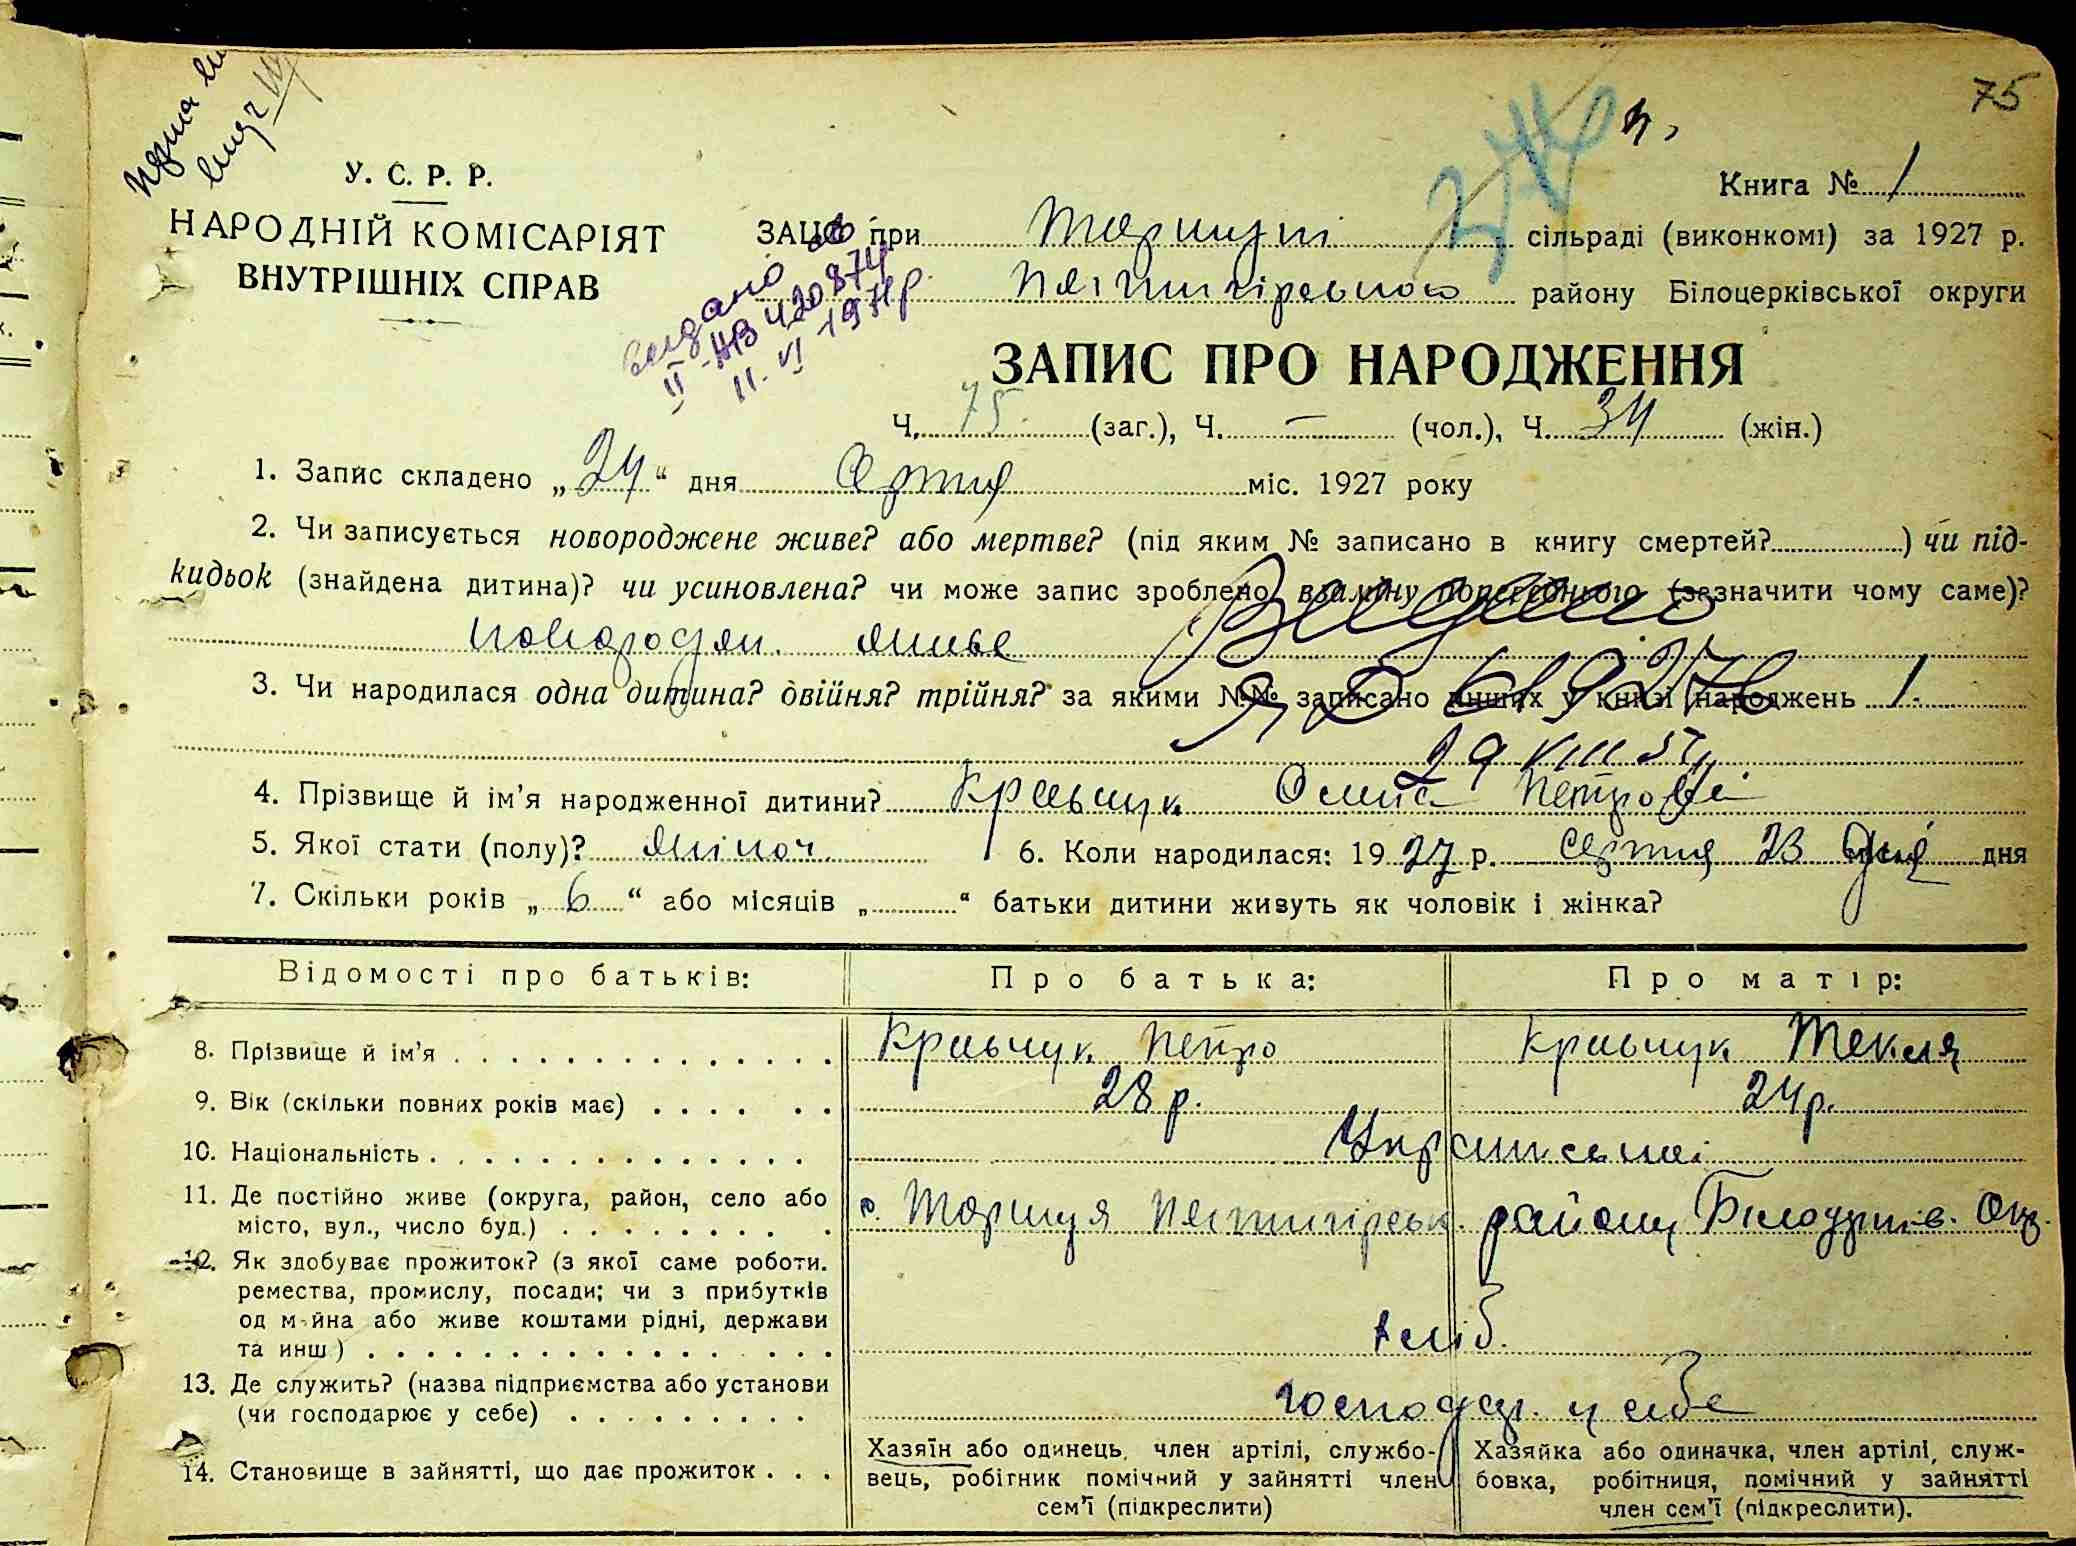 75
У. С. Р. Р.
НАРОДНІЙ КОМІСАРІЯТ
ВНУТРІШНІХ СПРАВ
Книга № 1
ЗАЦС при сільраді (виконкомі) за 1927 р.
району Білоцерківської округи
видано св
ІІ-НВ 420874
11. VI 1971р.
ЗАПИС ПРО НАРОДЖЕННЯ
Ч. 75. (заг.), Ч. — (чол.), Ч. 34 (жін.)
1. Запис складено „24“ дня Серпня міс. 1927 року
2. Чи записується новороджене живе? або мертве? (під яким № записано в книгу смертей?) чи під-
кидьок (знайдена дитина)? чи усиновлена? чи може запис зроблено взаміну попереднього (зазначити чому саме)?
новородж. живе
Видано
3. Чи народилася одна дитина? двійня? трійня? за якими №№ записано инших у книзі народжень 1.
29 VIII 54
4. Прізвище й ім'я народженної дитини? Кравчук Петрові
5. Якої стати (полу)? жіноч. 6. Коли народилася: 1927 р. серпня 23 дня дня
7. Скільки років „6“ або місяців „“ батьки дитини живуть як чоловік і жінка?
Відомості про батьків: Про батька: Про матір:
8. Прізвище й ім'я Кравчук Петро Кравчук Текля
9. Вік (скільки повних років має) 28 р. 24 р.
10. Національність Українські
11. Де постійно живе (округа, район, село або
місто, вул., число буд.) с. Торчиця П'ятигірськ. району Білоцерків. Окр.
12. Як здобуває прожиток? (з якої саме роботи.
ремества, промислу, посади; чи з прибутків
од майна або живе коштами рідні, держави
та инш.) хліб.
13. Де служить? (назва підприємства або установи
(чи господарює у себе) господар. у себе
14. Становище в зайнятті, що дає прожиток
Хазяїн або одинець, член артілі, службо-
вець, робітник помічний у зайнятті член
сем'ї (підкреслити)
Хазяйка або одиначка, член артілі, служ-
бовка, робітниця, помічний у зайнятті
член сем'ї (підкреслити).